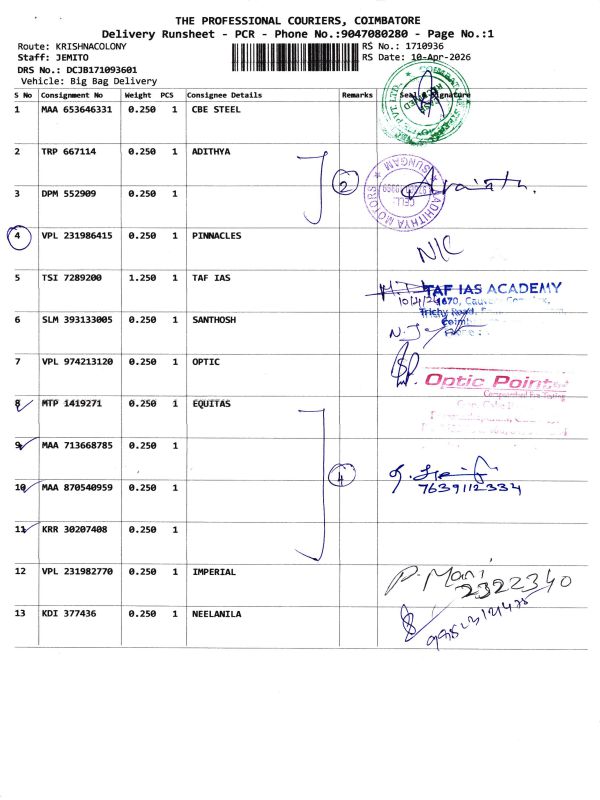 THE PROFESSIONAL COURIERS, COIMBATORE
Delivery Runsheet - PCR - Phone No.:9047080280 - Page No.:1
Route: KRISHNACOLONY RS No.: 1710936
Staff: JEMITO RS Date: 10-Apr-2026
DRS No.: DCJB171093601
Vehicle: Big Bag Delivery
S No Consignment No Weight PCS Consignee Details Remarks Seal & Signature
1 MAA 653646331 0.250 1 CBE STEEL
2 TRP 667114 0.250 1 ADITHYA
3 DPM 552909 0.250 1 2
AADHITHYA MOTORS
SUNGAM
CELL:
4 VPL 231986415 0.250 1 PINNACLES N/C
5 TSI 7289200 1.250 1 TAF IAS
TAF IAS ACADEMY
10/4/26
1670,
Trichy Road,
6 SLM 393133005 0.250 1 SANTHOSH
7 VPL 974213120 0.250 1 OPTIC
Optic Point
Computerised Eye Testing
8 MTP 1419271 0.250 1 EQUITAS
9 MAA 713668785 0.250 1
10 MAA 870540959 0.250 1 4
7639112334
11 KRR 30207408 0.250 1
12 VPL 231982770 0.250 1 IMPERIAL P. Mani
2322340
13 KDI 377436 0.250 1 NEELANILA